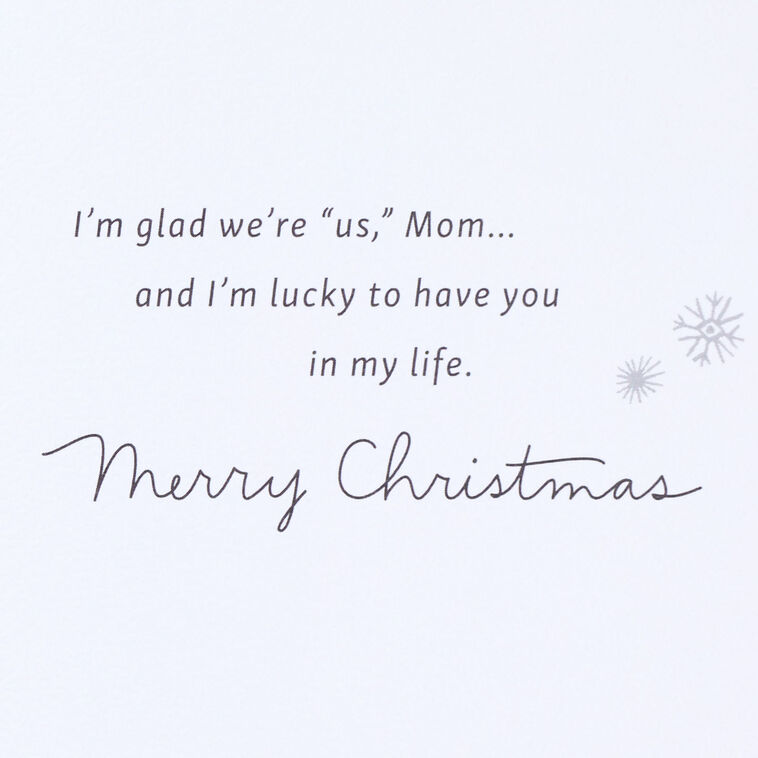 I’m glad we’re “us,” Mom...
and I’m lucky to have you
in my life.
Merry Christmas